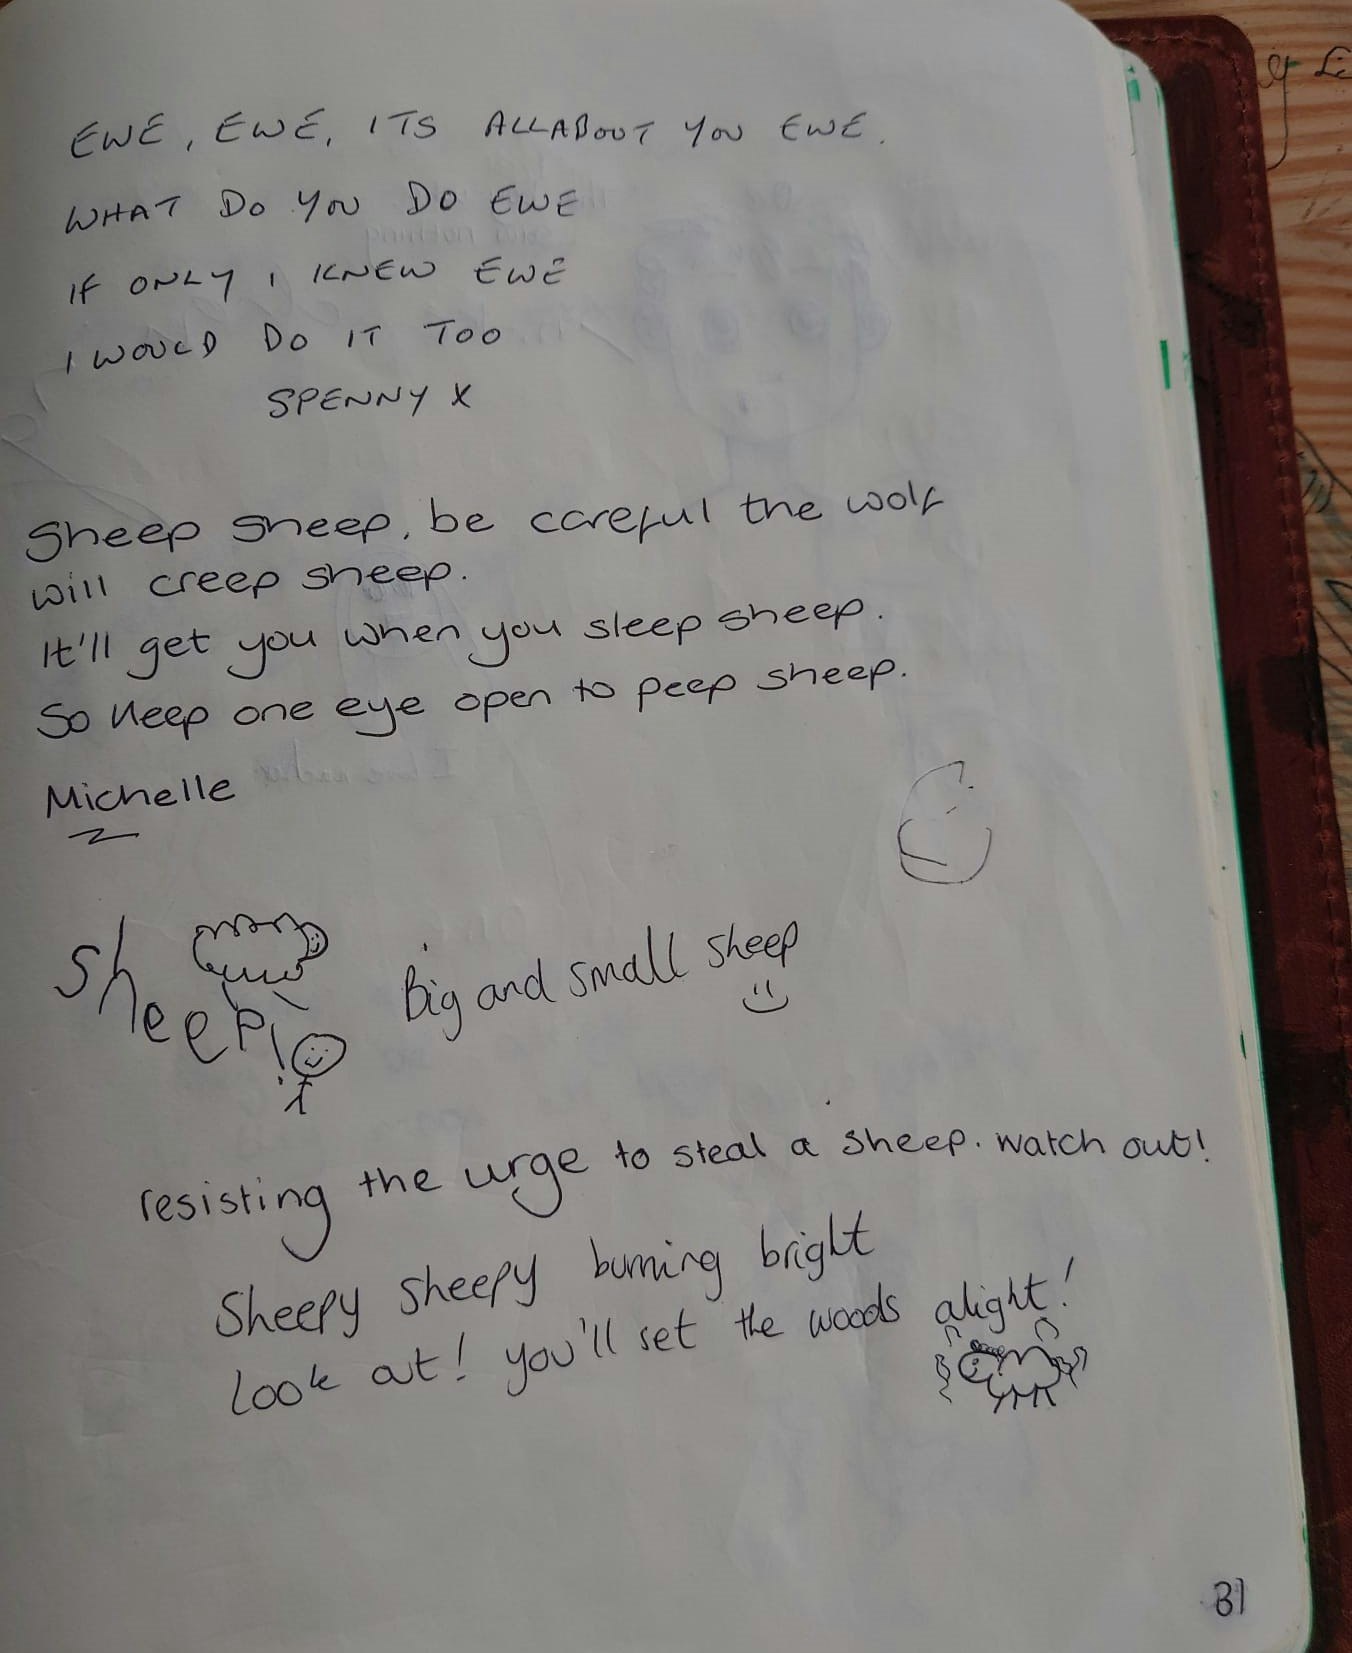 EWE, EWE, ITS ALLABOUT YOU EWE.
WHAT DO YOU DO EWE
IF ONLY I KNEW EWE
I WOULD DO IT TOO
SPENNY X
Sheep sheep, be careful the wolf
will creep sheep.
It'll get you when you sleep sheep.
So keep one eye open to peep sheep.
Michelle
sheep!
Big and small sheep
resisting the urge to steal a sheep. watch out!
Sheepy sheepy burning bright
Look out! you'll set the woods alight!
31